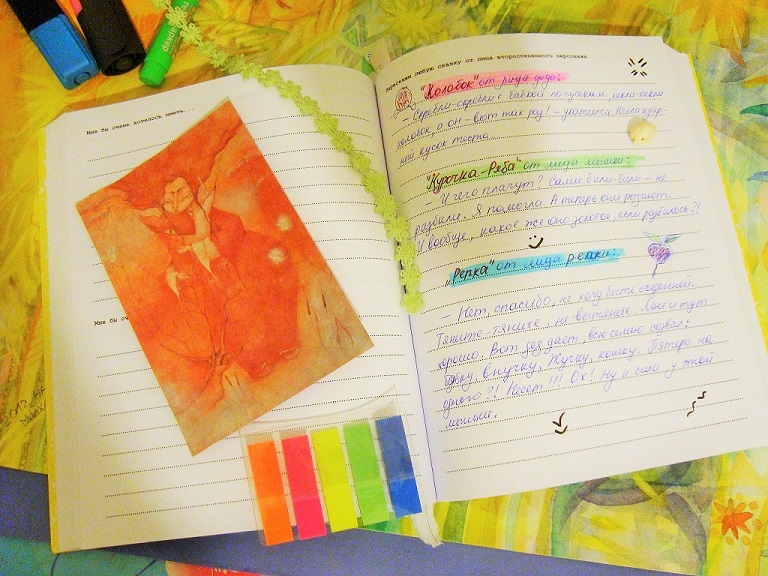 Мне бы очень хотелось знать...
Мне бы
Расскажи любую сказку от лица второстепенного персонажа.
"Колобок" от лица деда:
— Скребли-скребли с бабкой по сусекам, пекли-пекли
колобок, а он – вот так раз! – укатился.
кусок теста.
"Курочка-Ряба" от лица мышки:
— И чего плачут? Сами били-били – не
разбили. Я помогла. А теперь они рыдают.
И вообще, какое же оно золотое, если разбилось?!
"Репка" от лица репки:
— Нет, спасибо, не хочу быть съеденной.
Тяните-тяните, не вытяните. Мне и тут
хорошо. Вот дед дает, всю семью созвал:
бабку, внучку, Жучку, кошку. Пятеро на
одного?! Нееет!!! Ох! Ну и сила у этой
мышки.
2012